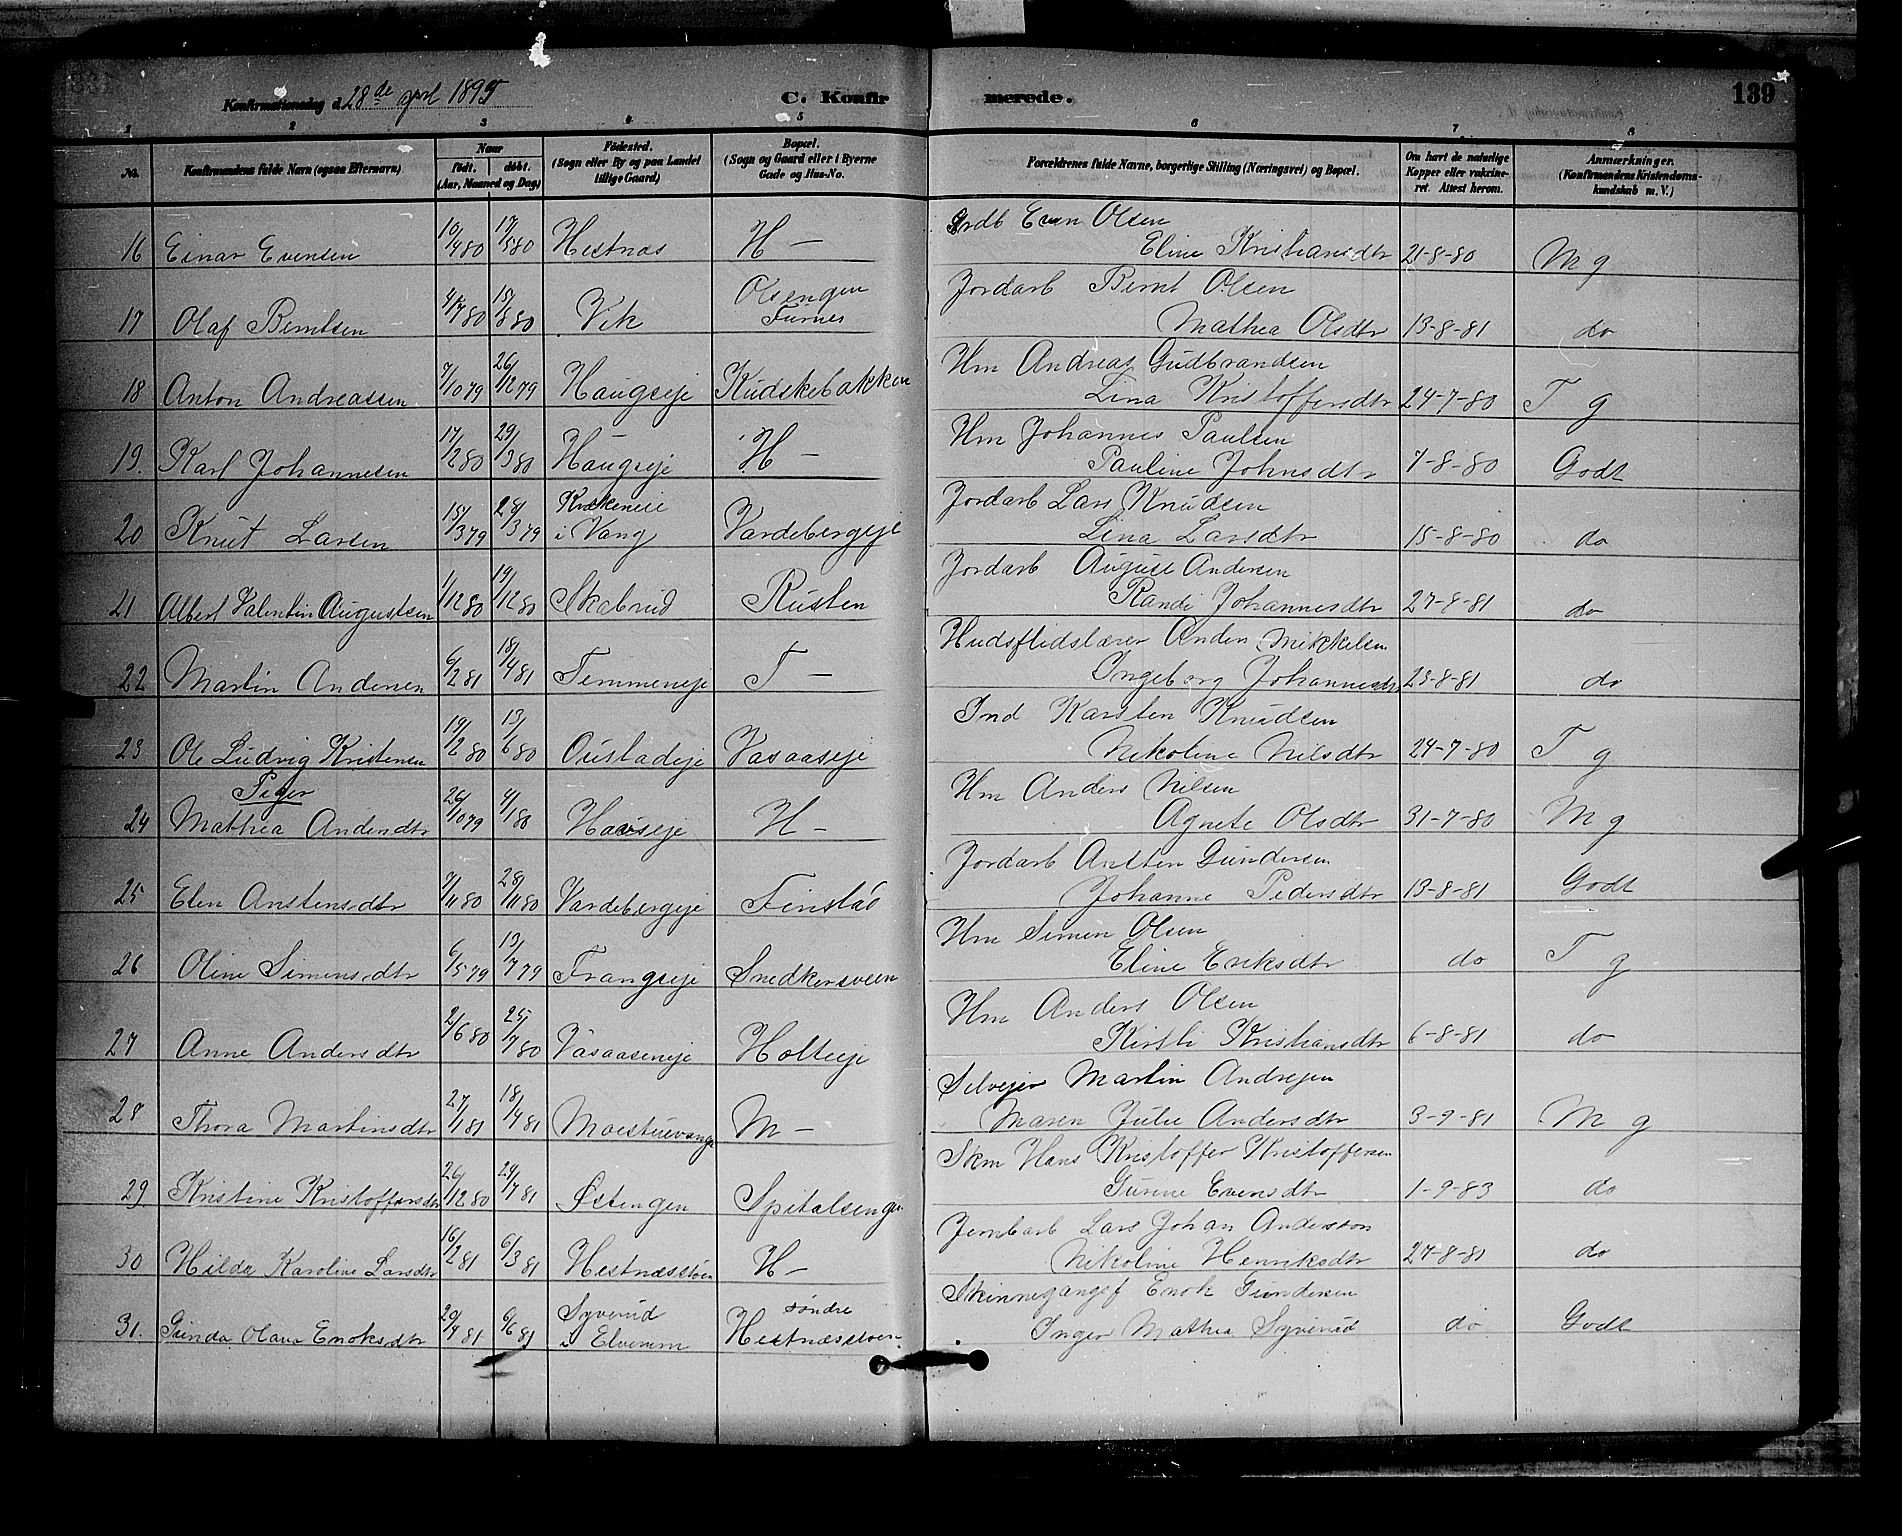 Konfirmationsdag d. 28de april 1895 C. Konfirmerede. 139
1 2 3 4 5 6 7 8
No. Konfirmandens fulde Navn (ogsaa Efternavn) Naar født. døbt. (Aar, Maaned og Dag) Fødested. (Sogn eller By og paa Landet tillige Gaard) Bopæl. (Sogn og Gaard eller i Byerne Gade og Hus-No. Forældrenes fulde Navne, borgerlige Stilling (Næringsvei) og Bopæl. Om havt de naturlige Kopper eller vakcineret. Attest herom. Anmærkninger. (Konfirmandens Kristendomskundskab m. V.)
Grdb Even Olsen
16 Einar Evensen 10/4 80 17/5 80 Hestnæs H — Eline Kristiansdtr 21-8-80 M g
Jordarb Bernt Olsen
17 Olaf Berntsen 4/7 80 15/8 80 Vik Olsengen Furnes Mathea Olsdtr 13-8-81 do
Hm Andreas Gudbrandsen
18 Anton Andreassen 7/10 79 26/12 79 Haugseje Kudskebakken Lina Kristoffersdtr 24-7-80 T g
Hm Johannes Paulsen
19. Karl Johannesen 17/2 80 29/3 80 Haugseje H — Pauline Johnsdtr 7-8-80 Godt
Jordarb Lars Knudsen
20 Knut Larsen 15/3 79 i Vang Vardebergeje Lina Larsdtr 15-8-80 do
Jordarb August Andersen
21 Albert Valentin Augustsen 1/12 80 19/12 80 Skabrud Rusten Randi Johannesdtr 27-8-81 do
Husflidslærer Anders Mikkelsen
22 Martin Andersen 6/2 81 18/4 81 Temmeneje T — Ingeborg Johannesdtr 23-8-81 do
Ind Karsten Knudsen
23 Ole Ludvig Kristensen 19/2 80 13/6 80 Oustadeje Vasaaseje Nikoline Nilsdtr 24-7-80 T g
Piger
Hm Anders Nilsen
24 Mathea Andersdtr 26/10 79 4/1 80 Hauseje H — Agnete Olsdtr 31-7-80 M g
Jordarb Ansten Gundersen
25 Elen Anstensdtr 7/11 80 28/11 80 Vardebergeje Finstad Johanne Pedersdtr 13-8-81 Godt
Hm Simen Olsen
26 Oline Simensdtr 6/5 79 13/7 79 Frangseje Snedkersveen Eline Eriksdtr do T g
Hm Anders Olsen
27 Anne Andersdtr 2/6 80 25/7 80 Vasaaseneje Holteeje Kirsti Kristiansdtr 6-8-81 do
Selvejer Martin Andresen
28 Thora Martinsdtr 27/1 81 18/4 81 Moestuevangen M — Maren Julie Andersdtr 3-9-81 M g
Skm Hans Kristoffer Kristoffersen
29. Kristine Kristoffersdtr 26/12 80 24/7 81 Østengen Spitalsengen Gurine Evensdtr 1-9-83 do
Jernbarb Lars Johan Andersson
30 Hilda Karoline Larsdtr 16/2 81 6/3 81 Hestnæsstøen H — Nikoline Henriksdtr 27-8-81 do
Skinnegangsf Enok Gundersen
31. Gunda Olava Enoksdtr 20/4 81 6/6 81 Syverud i Elverum søndre Hestnæsstøen Inger Mathea Syverud do Godt